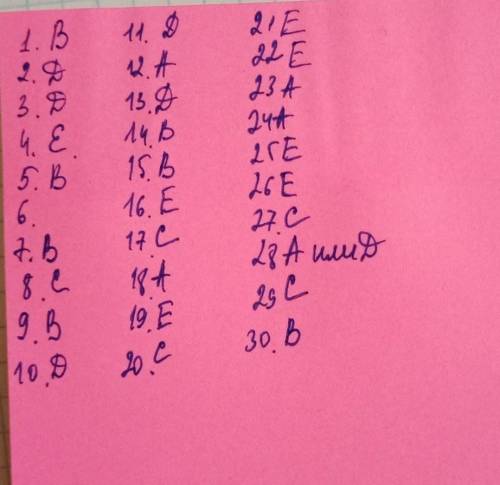 1. B
2. D
3. D
4. E.
5. B
6.
7. B
8. C
9. B
10. D
11. D
12. A
13. D
14. B
15. B
16. E
17. C
18. A
19. E
20. C
21 E
22 E
23 A
24 A
25 E
26 E
27. C
28 A или D
29 C
30. B